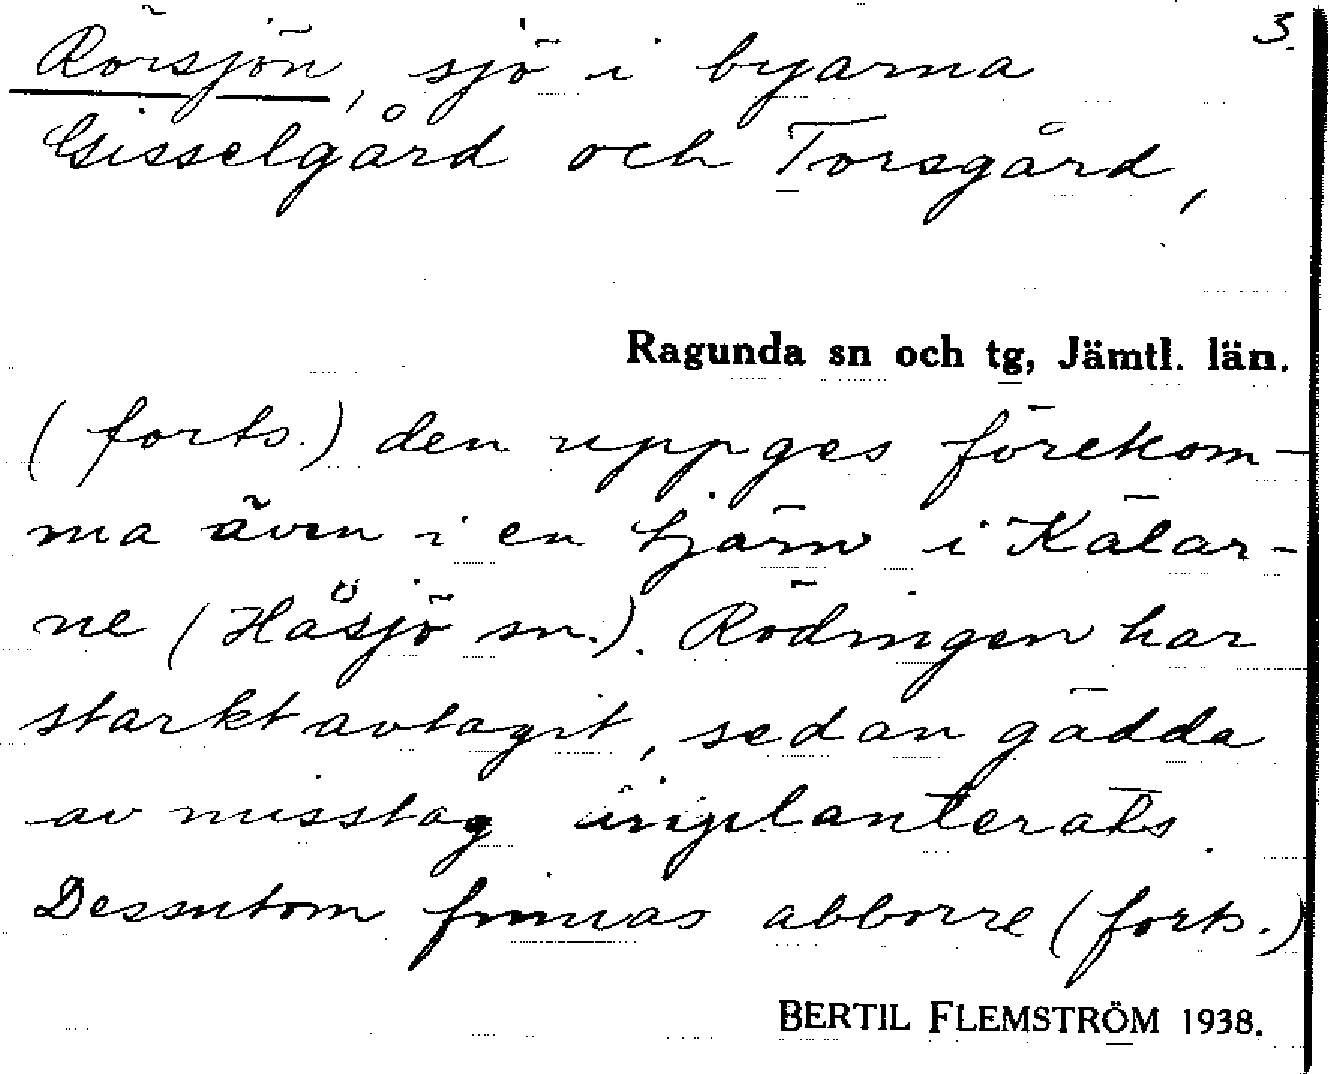 3.
Rörsjön, sjö i byarna
Gisselgård och Torsgård,
Ragunda sn och tg, Jämtl. län.
(forts.) den uppges förekom-
ma även i en tjärn i Kälar-
ne (Håsjö sn.). Rödingen har
starkt avtagit, sedan gädda
av misstag inplanterats.
Dessutom finnas abborre (forts.)
BERTIL FLEMSTRÖM 1938.